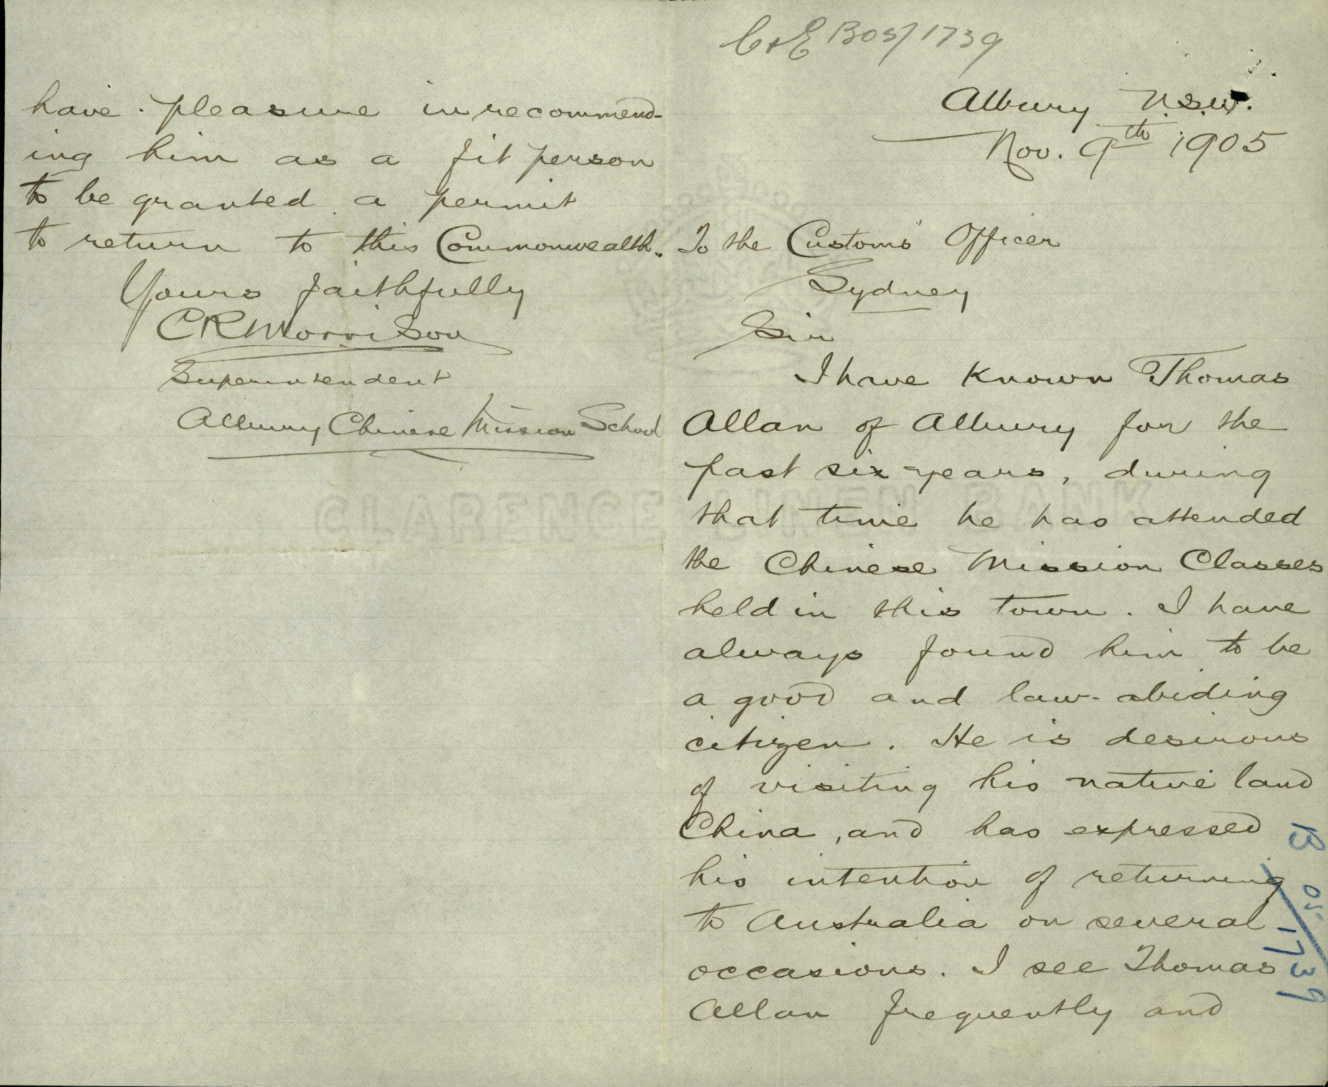 C & E B05/1739
Albury N.S.W.
Nov. 9th 1905
To the Customs Officer
Sydney
Sir
I have known Thomas
Allan of Albury for the
past six years, during
that time he has attended
the Chinese Mission Classes
held in this town. I have
always found him to be
a good and law-abiding
citizen. He is desirous
of visiting his native land
China, and has expressed
his intention of returning
to Australia on several
occasions. I see Thomas
Allan frequently and
B 05/1739
have pleasure in recommend-
ing him as a fit person
to be granted a permit
to return to this Commonwealth.
Yours faithfully
C R Morrison
Superintendent
Albury Chinese Mission School
CLARENCE LINEN BANK